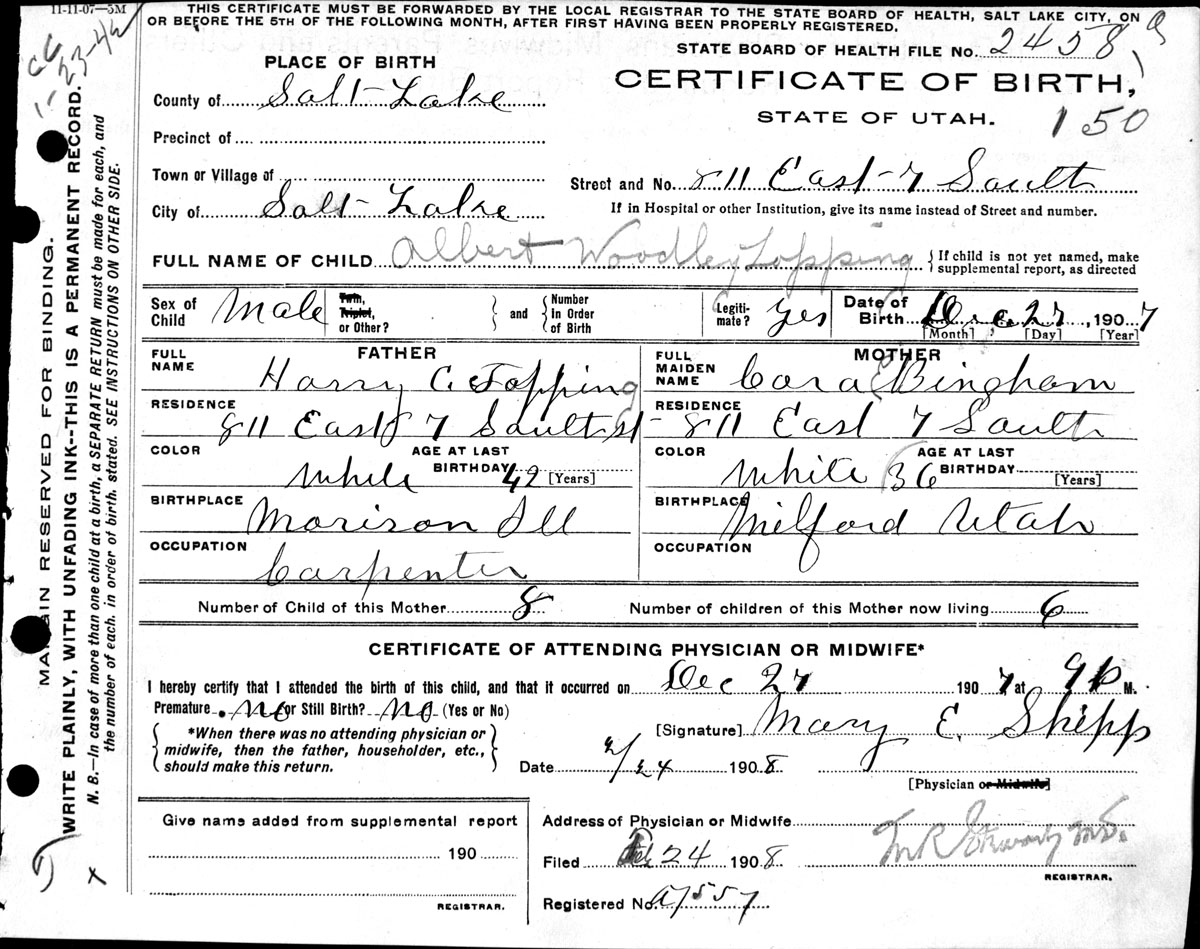 11-11-07-5M
THIS CERTIFICATE MUST BE FORWARDED BY THE LOCAL REGISTRAR TO THE STATE BOARD OF HEALTH, SALT LAKE CITY, ON
OR BEFORE THE 5TH OF THE FOLLOWING MONTH, AFTER FIRST HAVING BEEN PROPERLY REGISTERED.
STATE BOARD OF HEALTH FILE No. 2458
1-23-42
CERTIFICATE OF BIRTH,
STATE OF UTAH.
150
PLACE OF BIRTH
County of Salt Lake
Precinct of
Town or Village of
City of Salt Lake
Street and No. 811 East 7 South
If in Hospital or other Institution, give its name instead of Street and number.
FULL NAME OF CHILD Albert Woodley Topping { If child is not yet named, make
supplemental report, as directed
Sex of Child Male Twin, Triplet, or Other? } and { Number In Order of Birth Legiti-mate? Yes Date of Birth Dec 27, 1907
[Month] [Day] [Year]
FATHER
FULL NAME Harry C. Topping
RESIDENCE 811 East 7 South st
COLOR White AGE AT LAST BIRTHDAY 42 [Years]
BIRTHPLACE Morison Ill
OCCUPATION Carpenter
MOTHER
FULL MAIDEN NAME Cora E Bingham
RESIDENCE 811 East 7 South
COLOR White AGE AT LAST BIRTHDAY 36 [Years]
BIRTHPLACE Milford Utah
OCCUPATION
Number of Child of this Mother 8 Number of children of this Mother now living 6
CERTIFICATE OF ATTENDING PHYSICIAN OR MIDWIFE*
I hereby certify that I attended the birth of this child, and that it occurred on Dec 27 1907, at 9 p M.
Premature No or Still Birth? No (Yes or No)
{ *When there was no attending physician or
midwife, then the father, householder, etc.,
should make this return. }
[Signature] Mary E. Shipp
Date 2/24 1908
[Physician or Midwife]
Give name added from supplemental report
190
REGISTRAR.
Address of Physician or Midwife
Filed Feb 24 1908
REGISTRAR.
Registered No. a7557
MARGIN RESERVED FOR BINDING.
WRITE PLAINLY, WITH UNFADING INK--THIS IS A PERMANENT RECORD.
N. B.—In case of more than one child at a birth, a SEPARATE RETURN must be made for each, and
the number of each, in order of birth, stated. SEE INSTRUCTIONS ON OTHER SIDE.